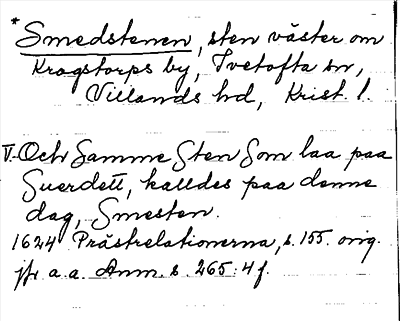 * Smedstenen, sten väster om
Krogstorps by, Ivetofta sn,
Villands hd, Krist. l.
V. Och Samme Sten Som laa paa
Suerdett, kalldes paa denne
dag, Smesten.
1624 Prästrelationerna, s. 155. orig.
jfr a.a. Anm. s. 265: 4 f.